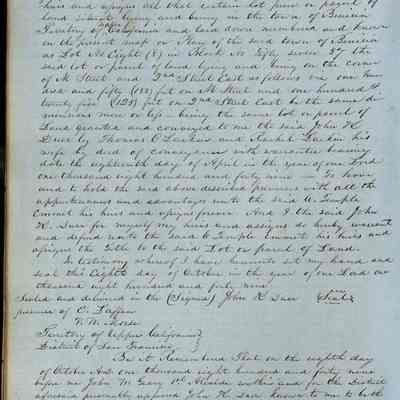 heirs and assigns all that certain lot piece or parcel of
land situate lying and being in the town of Benicia
Territory of Upper California and laid down numbered and known
on the present map or Plan of the said town of Benicia
as Lot No Eight (8) in Block No Fifty seven 57 the
said lot or parcel of land lying and being on the corner
of M Street and 2nd Street East as follows viz one hun
dred and fifty (150) feet on M Street and one hundred &
twenty five (125) feet on 2nd Street East be the same di
mensions more or less being the same lot or parcel of
Land granted and conveyed to me the said John K
Duer by Thomas O Larkin and Rachel Larkin his
wife by deed of Conveyance with warrantee bearing
date the eighteenth day of April in the year of our Lord
one thousand eight hundred and forty nine — To have
and to hold the said above described premises with all the
appurtenances and advantages unto the said W. Temple
Emmet his heirs and assigns forever. And I the said John
K. Duer for myself my heirs and assigns do hereby warrent
and defend unto the said W Temple Emmet his heirs and
assigns the title to the said Lot or parcel of Land.
In testimony whereof I have hereunto set my hand and
seal this Eighth day of October in the year of our Lord one
thousand eight hundred and forty nine
Sealed and delivered in the (Signed) John K Duer Seal
presence of C.
Territory of Upper California
District of San Francisco
Be it Remembered that on the eighth day
of October A.D. one thousand eight hundred and forty nine
before me John W. Geary 1st Alcalde within and for the District
aforesaid personally appeared John K. Duer known to me to be the